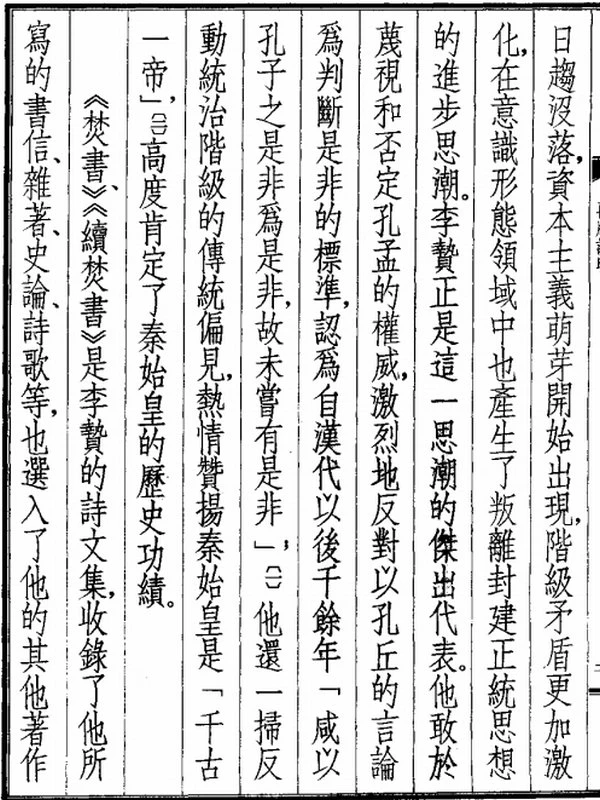 日趨没落，資本主義萌芽開始出現，階級矛盾更加激
化，在意識形態領域中也産生了叛離封建正統思想
的進步思潮。李贄正是這一思潮的傑出代表。他敢於
蔑視和否定孔孟的權威，激烈地反對以孔丘的言論
爲判斷是非的標準，認爲自漢代以後千餘年「咸以
孔子之是非爲是非，故未嘗有是非」；〔一〕他還一掃反
動統治階級的傳統偏見，熱情贊揚秦始皇是「千古
一帝」，〔二〕高度肯定了秦始皇的歷史功績。
《焚書》、《續焚書》是李贄的詩文集，收錄了他所
寫的書信、雜著、史論、詩歌等，也選入了他的其他著作